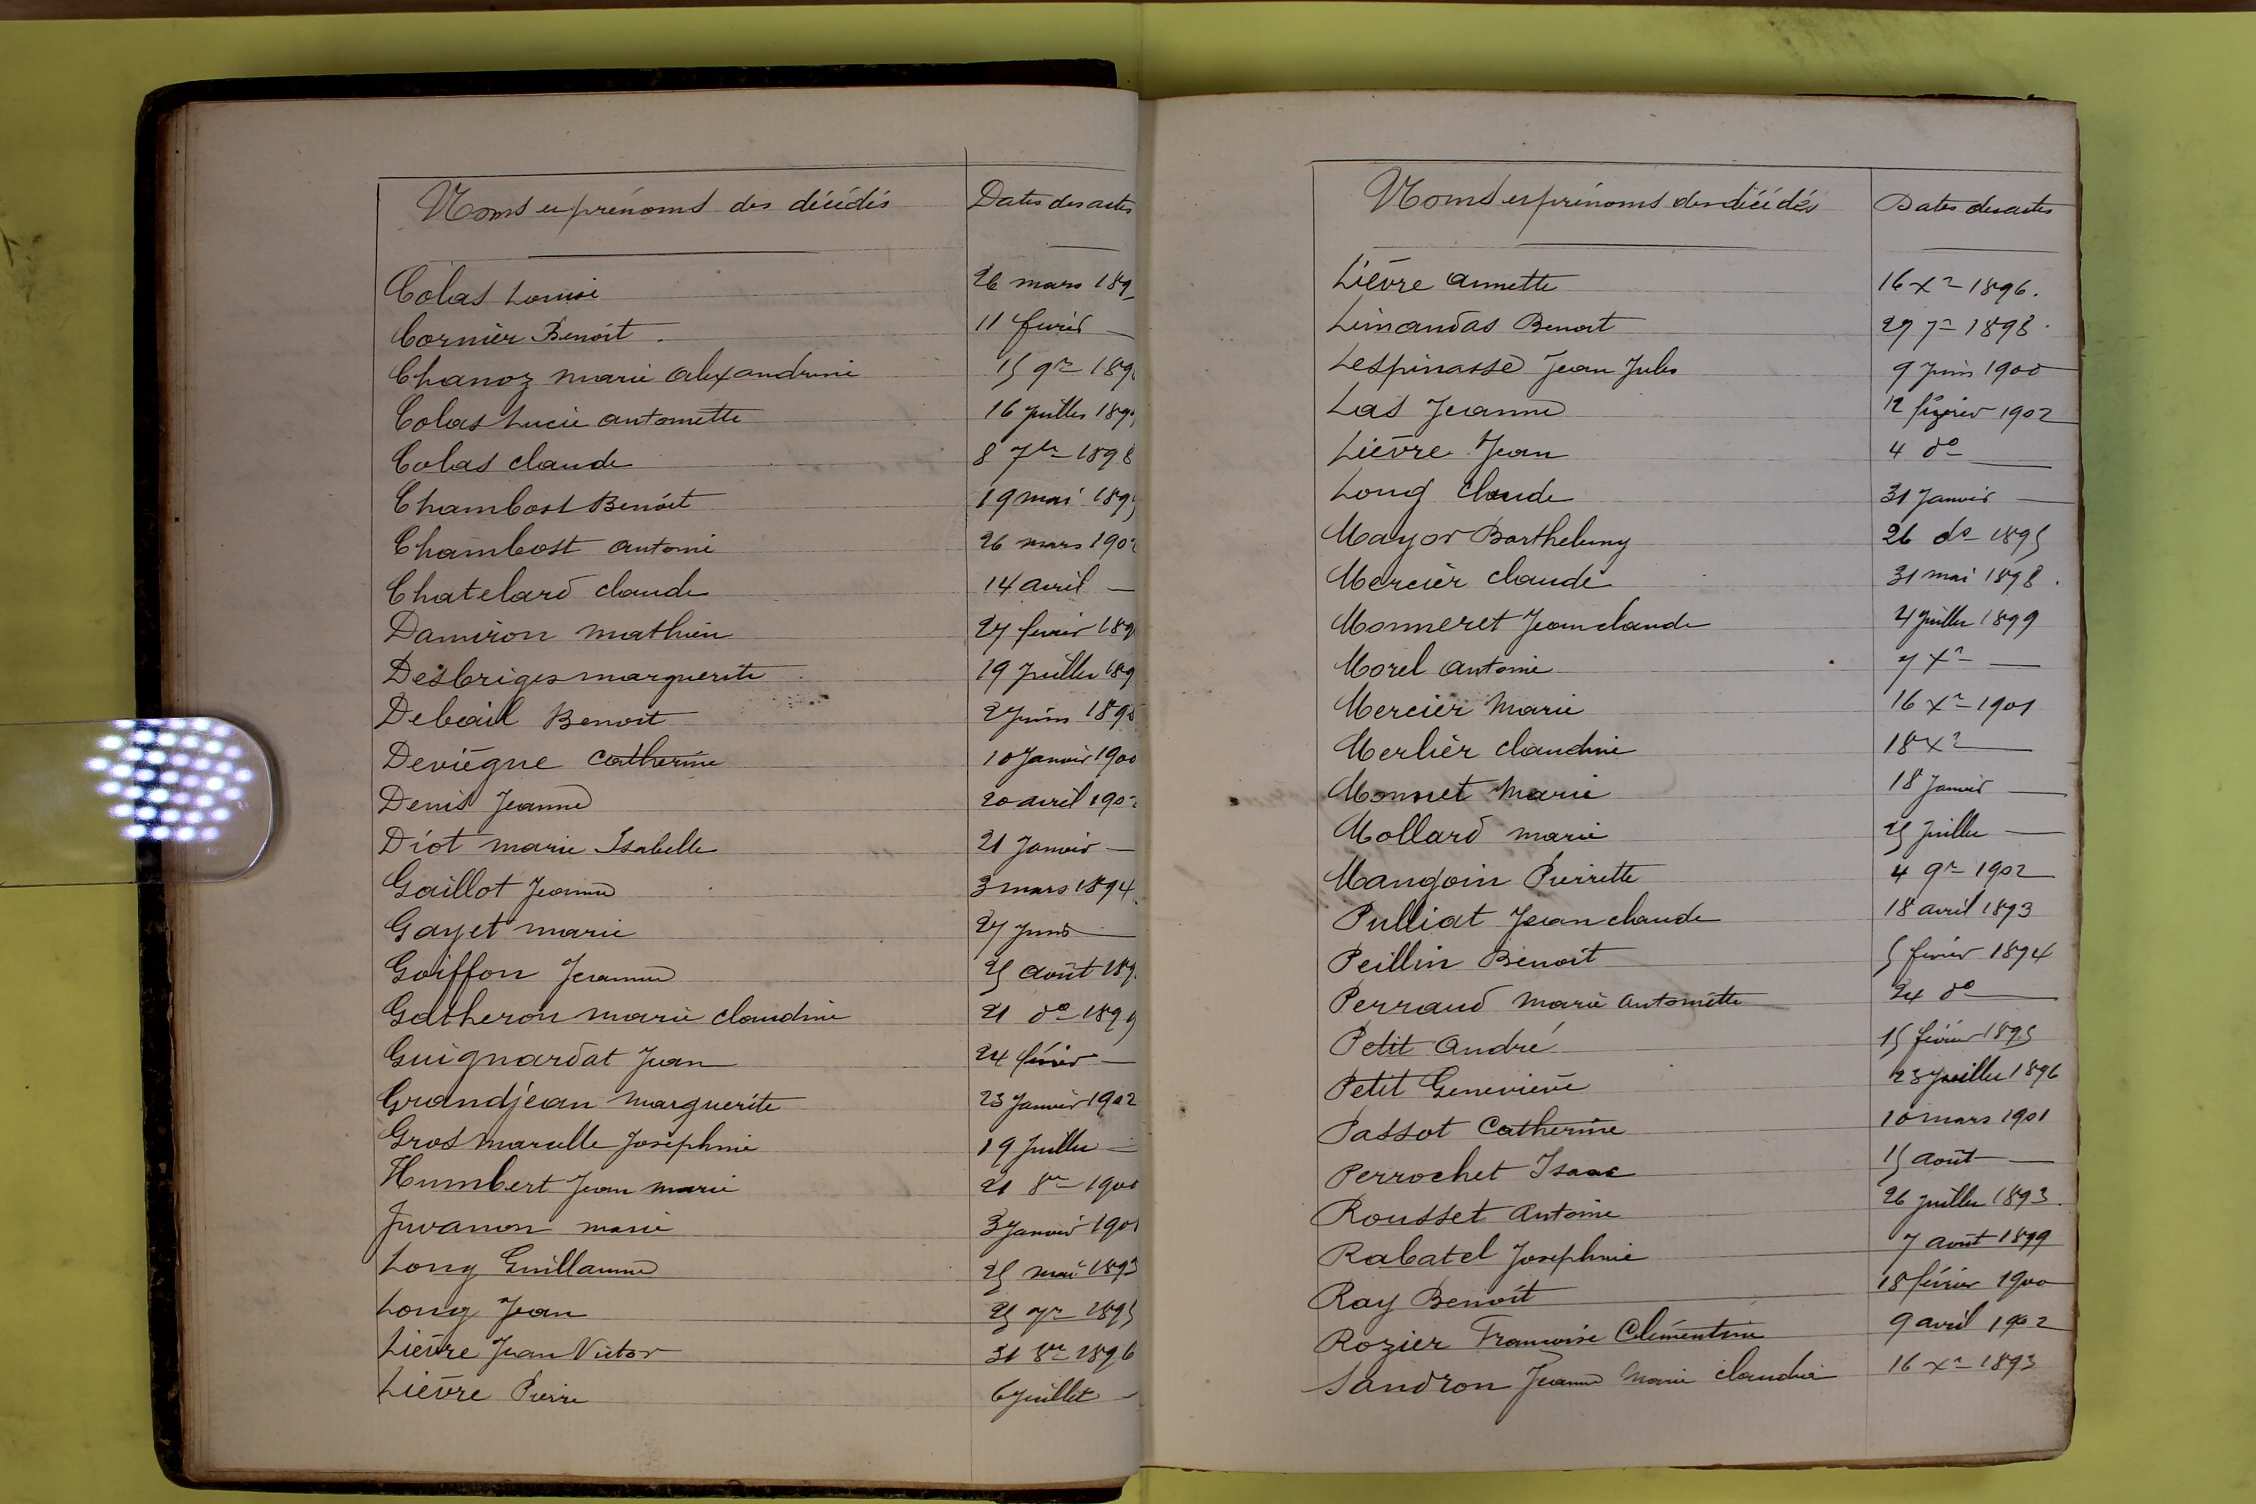 Noms et prénoms des décédés Dates des actes
Colas Louise 26 mars 189
Cornier Benoit 11 fevrier —
Chanoz marie alexandrine 15 9re 189
Colas Lucie antoinette 16 Juillet 189
Colas claude 8 7bre 1898
Chambost Benoit 19 mai 189
Chambost antoine 26 mars 190
Chatelard claude 14 avril —
Damiron mathieu 27 fevrier 189
Desbriges marguerite 19 Juillet 189
Debeail Benoit 2 Juin 189
Deviègne Catherine 10 Janvier 1900
Denis Jeanne 20 avril 190
Diot marie Isabelle 21 Janvier —
Gaillot Jeanne 3 mars 1894
Gayet marie 27 Juin —
Goiffon Jeanne 25 août 189
Gatheron marie claudine 21 do 1899
Guignardat Jean 24 février —
Grandjean Marguerite 23 Janvier 1902
Gros marcelle Josephine 19 Juillet —
Humbert Jean marie 21 8re 1900
Juvanon marie 3 Janvier 1901
Long Guillaume 25 mai 1893
Long Jean 25 7re 1895
Lièvre Jean Victor 31 8re 1896
Lièvre Pierre 6 Juillet —
Noms et prénoms des décédés Dates des actes
Lièvre annette 16 Xre 1896.
Limandas Benoit 27 7re 1898.
Lespinasse Jean Jules 9 Juin 1900
Las Jeanne 12 février 1902
Lièvre Jean 4 do —
Long Claude 31 Janvier —
Mayor Barthelemy 26 do 1895
Mercier claude 31 mai 1898.
Monneret Jean claude 4 Juillet 1899
Morel antoine 7 Xre —
Mercier Marie 16 Xre 1901
Merlier claudine 18 Xre —
Monnet Marie 18 Janvier —
Mollard marie 25 Juillet —
Mangoin Pierrette 4 9re 1902
Pulliat Jean claude 18 avril 1893
Peillin Benoit 5 fevrier 1894
Perraud Marie antoinette 24 do —
Petit andré 15 février 1895
Petit Geneviève 23 Juillet 1896
Passot Catherine 10 mars 1901
Perrochet Isaac 15 août —
Rousset Antoine 26 Juillet 1893.
Rabatel Josephine 7 août 1899
Ray Benoit 18 février 1900
Rozier Francoise Clémentine 9 avril 1902
Sandron Jeanne Marie claudia 16 Xre 1893